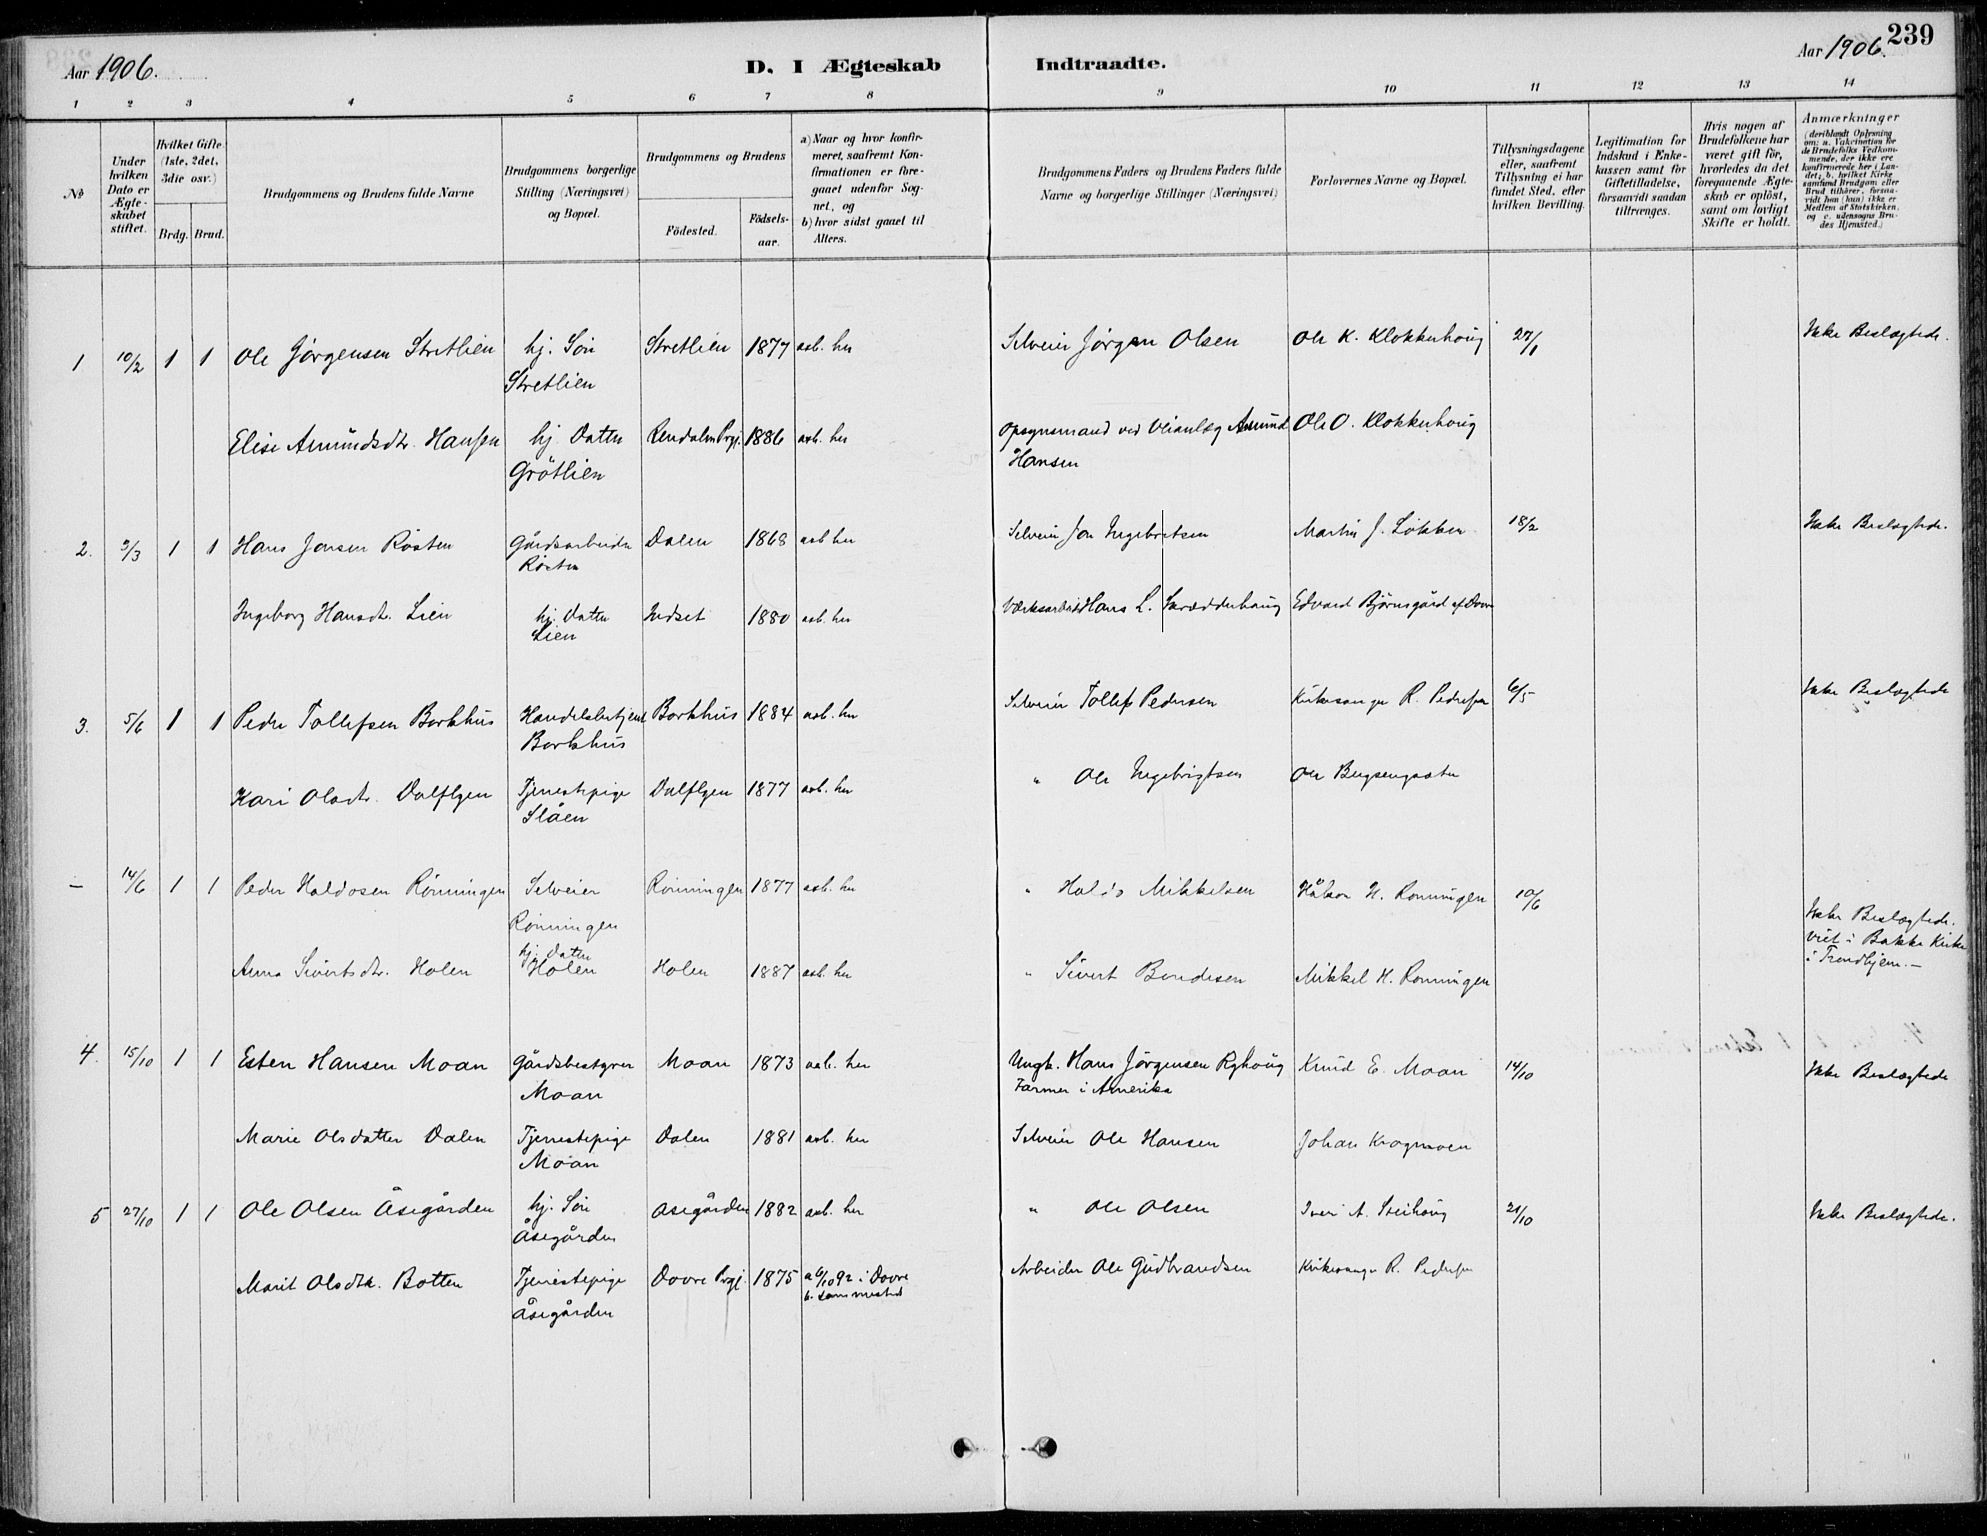 239
Aar 1906.
D. I Ægteskab Indtraadte.
Aar 1906.
1 2 3 4 5 6 7 8 9 10 11 12 13 14
№
Under hvilken Dato er Ægteskabet stiftet.
Hvilket Gifte (1ste, 2det, 3die osv.)
Brdg. Brud.
Brudgommens og Brudens fulde Navne
Brudgommens borgerlige Stilling (Næringsvei) og Bopæl.
Brudgommens og Brudens
Fødested.
Fødsels-aar.
a) Naar og hvor konfirmeret, saafremt Konfirmationen er foregaaet udenfor Sognet, og
b) hvor sidst gaaet til Alters.
Brudgommens Faders og Brudens Faders fulde Navne og borgerlige Stillinger (Næringsvei)
Forlovernes Navne og Bopæl.
Tillysningsdagene eller, saafremt Tillysning ei har fundet Sted, efter hvilken Bevilling.
Legitimation for Indskud i Enkekassen samt for Giftetilladelse, forsaavidt saadan tiltrænges.
Hvis nogen af Brudefolkene har været gift før, hvorledes da det foregaaende Ægteskab er opløst, samt om lovligt Skifte er holdt.
Anmærkninger
(deriblandt Oplysning om: a. Vakcination for de Brudefolks Vedkommende, der ikke ere konfirmerede her i Landet; b. hvilket Kirkesamfund Brudgom eller Brud tilhører, forsaavidt han (hun) ikke er Medlem af Statskirken, og c. udensogns Brudes Hjemsted.)
1 10/2 1 1 Ole Jørgensen Stretlien hj. Søn Stretlien 1877 aab. her Selveier Jørgen Olsen Ole K. Klokkerhoug 27/1 Ikke Beslægtede.
Stretlien
Elise Amundsdtr. Hansen hj. Datter Rendalen Prgj. 1886 aab. her Opsynsmand ved Veianlæg Amund Ole O. Klokkerhoug
Grøtlien Hansen
2. 9/3 1 1 Hans Jonsen Røsten Gårdsarbeider Dalen 1868 aab her Selveier Jon Ingebretsen Martin J. Løkken 18/2 Ikke Beslægtede.
Røsten
Ingeborg Hansdtr. Lien hj. Datter Indset 1880 aab. her Værksarbeider Hans L. Skrædderhaug Edvard Bjørnsgård af Dovre
Lien
3. 5/6 1 1 Peder Tollefsen Borkhus Handelsbetjent Borkhus 1884 aab. her Selveier Tollef Pedersen Kirkesanger R. Pedersen 6/5 Ikke Beslægtede
Borkhus
Kari Olsdtr. Dalflyen Tjenestepige Dalflyen 1877 aab. her " Ole Ingebrigtsen Ole
Slåen
— 14/6 1 1 Peder Haldosen Rønningen Selveier Rønningen 1877 aab. her " Haldo Mikkelsen Håkon H. Rønningen 10/6 Ikke Beslægtede.
Rønningen viet i Bakke Kirke
hj. Datter i Trondhjem.—
Anna Sivertsdtr. Holen Holen Holen 1887 aab. her " Sivert Bendesen Mikkel H. Rønningen
4. 15/10 1 1 Esten Hansen Moan Gårdsbestyrer Moan 1873 aab. her Ungk. Hans Jørgensen Ryhoug Knud E. Moan 14/10 Ikke Beslægtede
Moan Farmer i Amerika
Marie Olsdatter Dalen Tjenestepige Dalen 1881 aab. her Selveier Ole Hansen Johan Krogmoen
Moan
5 27/10 1 1 Ole Olsen Åsegården hj. Søn Åsegården 1882 aab. her " Ole Olsen Iver A. Steihoug 21/10 Ikke Beslægtede.
Åsegården
Marit Olsdtr. Botten Tjenestepige Dovre Prgj. 1875 a 6/10 92 i Dovre Arbeider Ole Gudbrandsen Kirkesanger R. Pedersen
Åsegården b. sammested